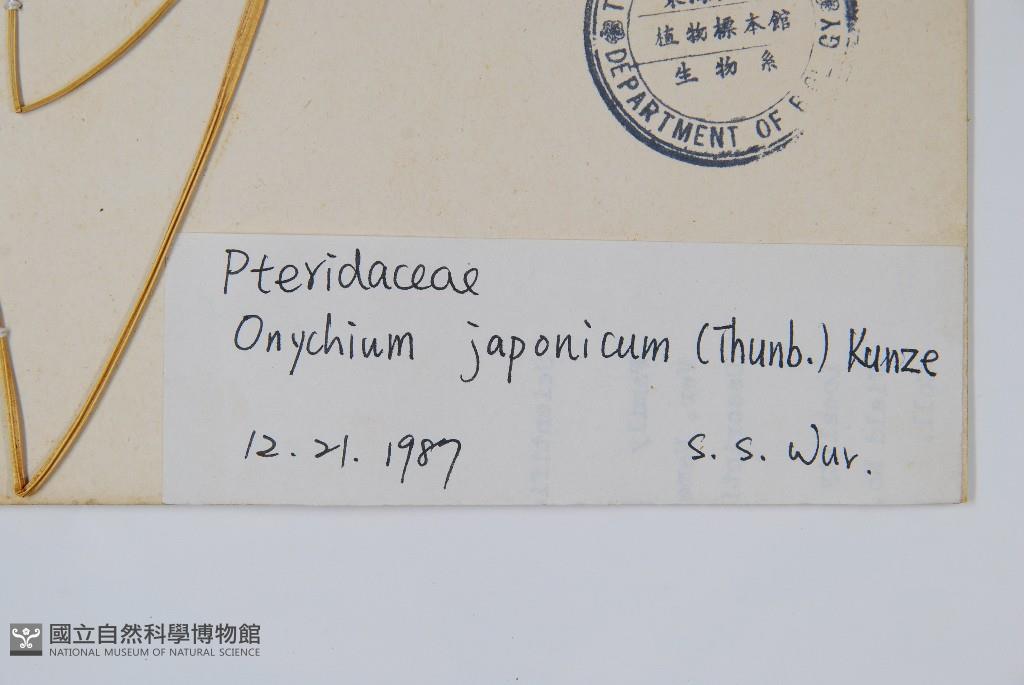 植物標本館
生物系
DEPARTMENT OF
Pteridaceae
Onychium japonicum (Thunb.) Kunze
12.21.1987
S. S. Wur.
國立自然科學博物館
NATIONAL MUSEUM OF NATURAL SCIENCE